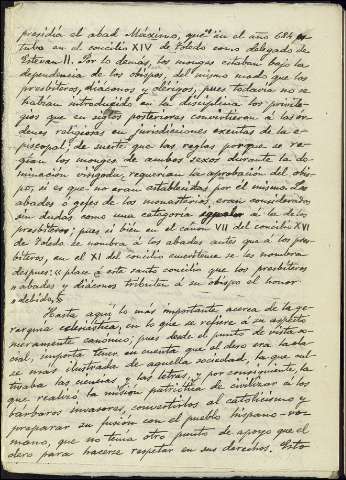 presidía el abad Máximo, que en el año 684 es-
tuvo en el concilio XIV de Toledo como delegado de
Estevan II. Por lo demás, los monges estaban bajo la
dependencia de los obispos, del mismo modo que los
presbíteros, diáconos y clérigos, pues todavía no se
habían introducido en la disciplina los privile-
gios que en siglos posteriores convirtieron á las ór-
denes religiosas en jurisdicciones exentas de la e-
piscopal; de suerte que las reglas porque se re-
gían los monges de ambos sexos durante la do-
minación visigoda, requerían la aprobación del obis-
po, si es que no eran establecidas por él mismo. Los
abades ó gefes de los monasterios, eran considerados
sin dudas como una categoría á la de los
presbíteros; pues si bien en el cánon VII del concilio XVI
de Toledo se nombra á los abades antes que á los pres-
bíteros, en el XI del concilio emeritense se les nombra
despues: "place á este santo concilio que los presbíteros
abades y diáconos tributen á su obispo el honor
debido."
Hasta aquí lo más importante, acerca de la ge-
rarquía eclesiástica, en lo que se refiere á su aspecto
meramente canónico; pues desde el punto de vista so-
cial, importa tener en cuenta que el clero era la cla-
se mas ilustrada de aquella sociedad, la que cul-
tivaba las ciencias y las letras, y por consiguiente, la
que realizó la misión patriótica de civilizar á los
bárbaros invasores, convertirlos al catolicismo y
preparar su fusión con el pueblo hispano-ro-
mano, que no tenía otro punto de apoyo que el
clero para hacerse respetar en sus derechos. Esto